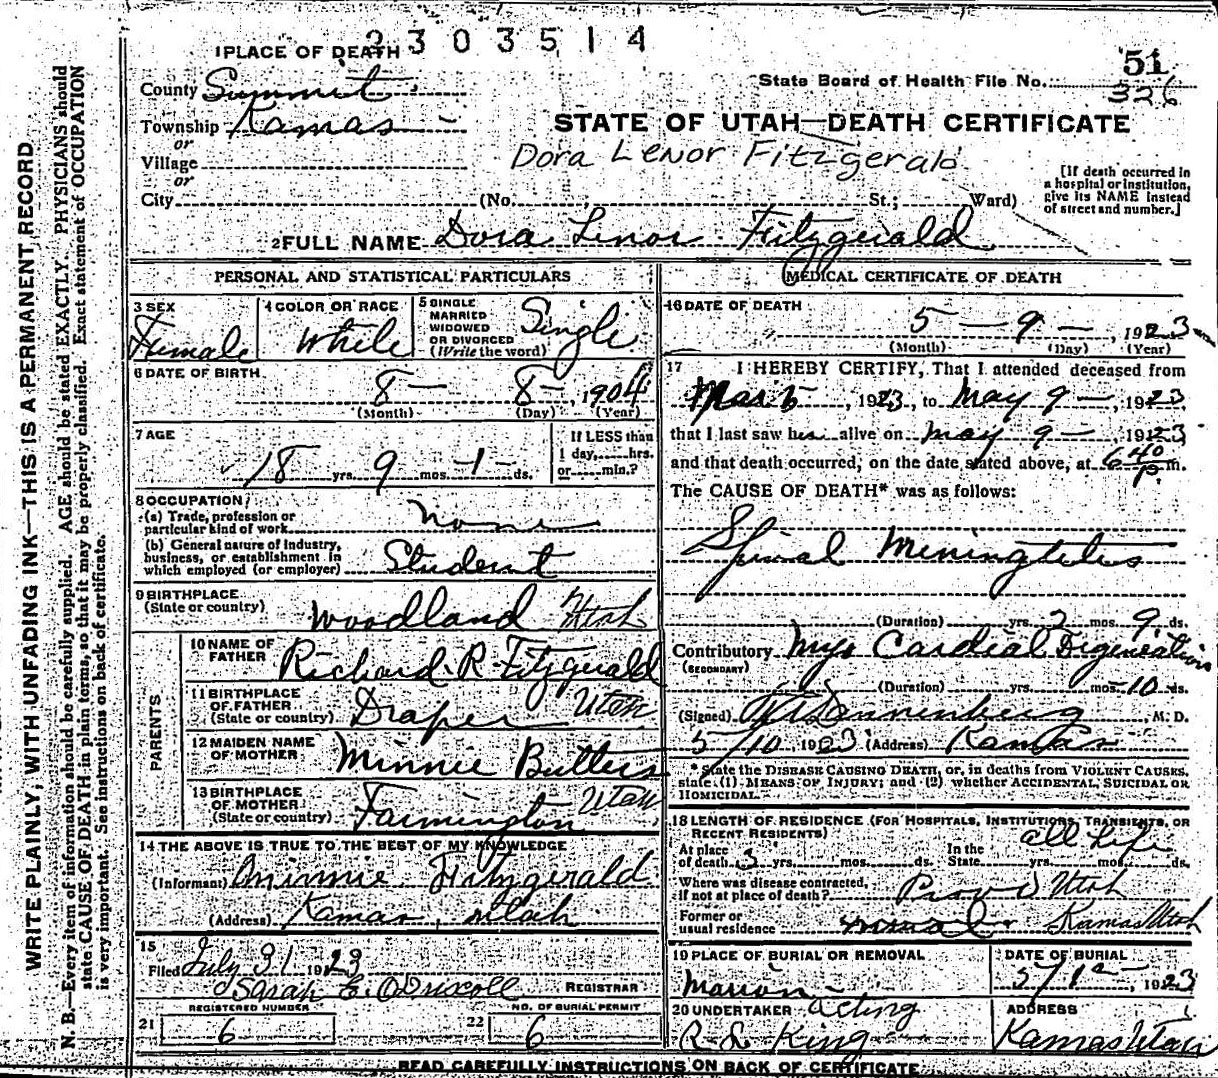 2303514
1 PLACE OF DEATH
51
State Board of Health File No.
326
County Summit
Township Kamas
or
Village
or
City (No. St.; Ward)
STATE OF UTAH—DEATH CERTIFICATE
Dora Lenor Fitzgerald
[If death occurred in
a hospital or institution,
give its NAME instead
of street and number.]
2 FULL NAME Dora Lenor Fitzgerald
PERSONAL AND STATISTICAL PARTICULARS
3 SEX
Female
4 COLOR OR RACE
White
5 SINGLE
MARRIED
WIDOWED
OR DIVORCED
(Write the word)
Single
6 DATE OF BIRTH
8 — 8 —, 1904
(Month) (Day) (Year)
7 AGE
18 yrs. 9 mos. 1 ds.
If LESS than
1 day, hrs.
or min.?
8 OCCUPATION
(a) Trade, profession or
particular kind of work none
(b) General nature of industry,
business, or establishment in
which employed (or employer) Student
9 BIRTHPLACE
(State or country) Woodland Utah
PARENTS
10 NAME OF
FATHER Richard R Fitzgerald
11 BIRTHPLACE
OF FATHER
(State or country) Draper Utah
12 MAIDEN NAME
OF MOTHER Minnie Butters
13 BIRTHPLACE
OF MOTHER
(State or country) Farmington Utah
14 THE ABOVE IS TRUE TO THE BEST OF MY KNOWLEDGE
(Informant) Minnie Fitzgerald
(Address) Kamas, Utah
15
Filed July 31 1923
Sarah E. O'Driscoll REGISTRAR
REGISTERED NUMBER
21 6
NO. OF BURIAL PERMIT
22 6
MEDICAL CERTIFICATE OF DEATH
16 DATE OF DEATH
5 — 9 —, 1923
(Month) (Day) (Year)
17 I HEREBY CERTIFY, That I attended deceased from
Mar 5, 1923, to May 9 —, 1923
that I last saw her alive on May 9 —, 1923
and that death occurred, on the date stated above, at 6 40 P. m.
The CAUSE OF DEATH* was as follows:
Spinal Miningtelus
(Duration) yrs. 2 mos. 9 ds.
Contributory Myo Cardial Digeneation
(SECONDARY)
(Duration) yrs. mos. 10 ds.
(Signed) Dannenberg, M. D.
5/10, 1923 (Address) Kamas
* State the DISEASE CAUSING DEATH, or, in deaths from VIOLENT CAUSES,
state (1) MEANS OF INJURY; and (2) whether ACCIDENTAL, SUICIDAL OR
HOMICIDAL.
18 LENGTH OF RESIDENCE (FOR HOSPITALS, INSTITUTIONS, TRANSIENTS, OR
RECENT RESIDENTS)
At place
of death 3 yrs. mos. ds.
In the
State all Life yrs. mos. ds.
Where was disease contracted,
if not at place of death? Provo Utah
Former or
usual residence Kamas Utah
19 PLACE OF BURIAL OR REMOVAL
Marion
DATE OF BURIAL
5/12 —, 1923
20 UNDERTAKER acting
R. L. King
ADDRESS
Kamas Utah
READ CAREFULLY INSTRUCTIONS ON BACK OF CERTIFICATE
WRITE PLAINLY, WITH UNFADING INK—THIS IS A PERMANENT RECORD
N. B.—Every item of information should be carefully supplied. AGE should be stated EXACTLY. PHYSICIANS should
state CAUSE OF DEATH in plain terms, so that it may be properly classified. Exact statement of OCCUPATION
is very important. See instructions on back of certificate.